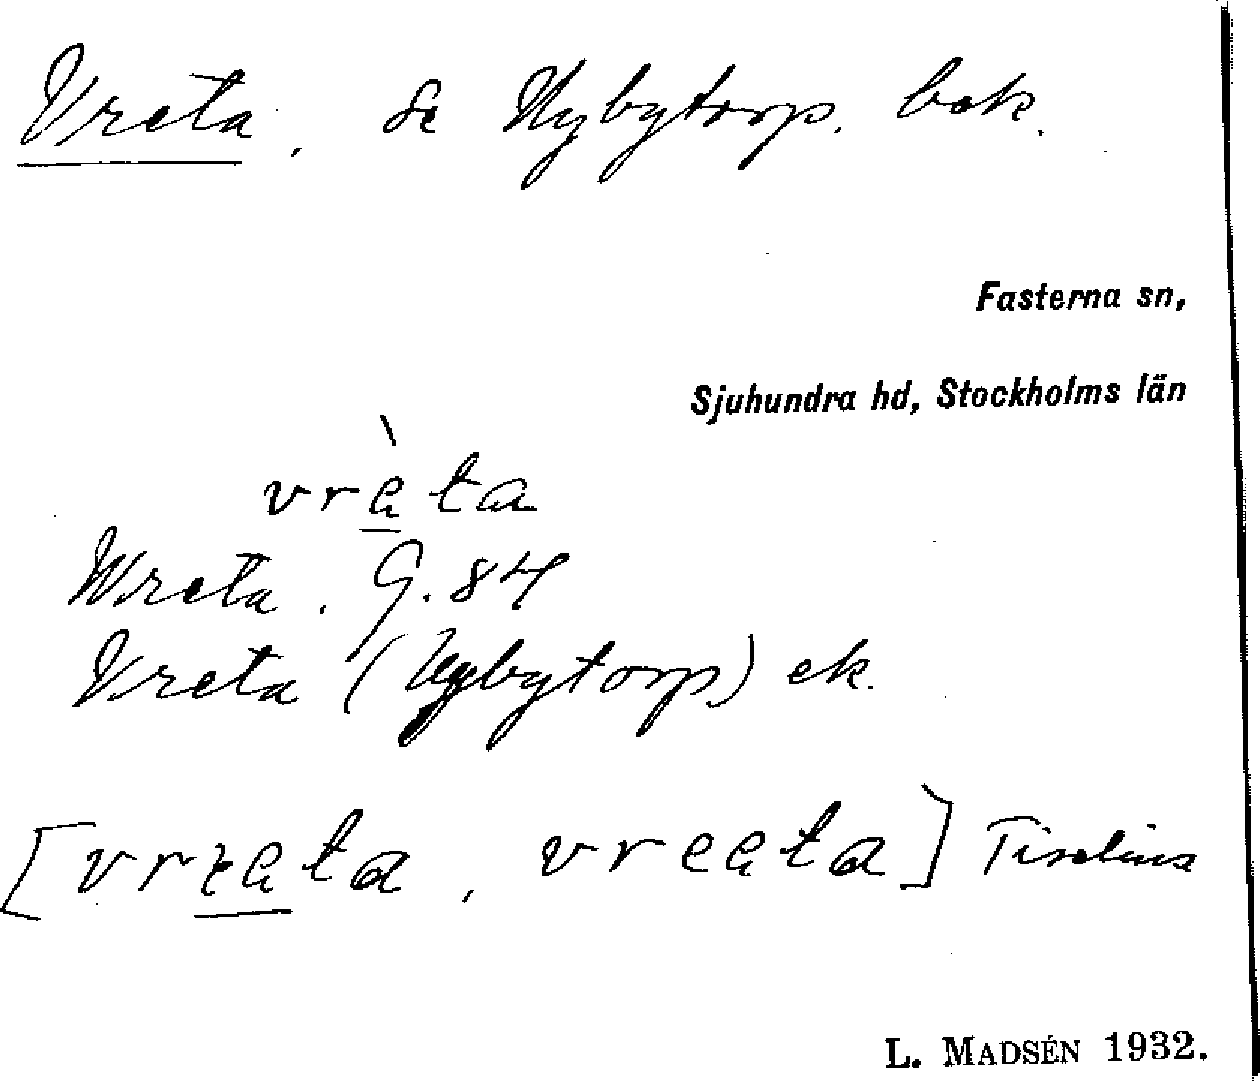 Vreta, se Nybytorp. bek.
Fasterna sn,
Sjuhundra hd, Stockholms län
Wreta. G. 84
Vreta (Nybytorp) ek.
Tiselius
L. MADSÉN 1932.